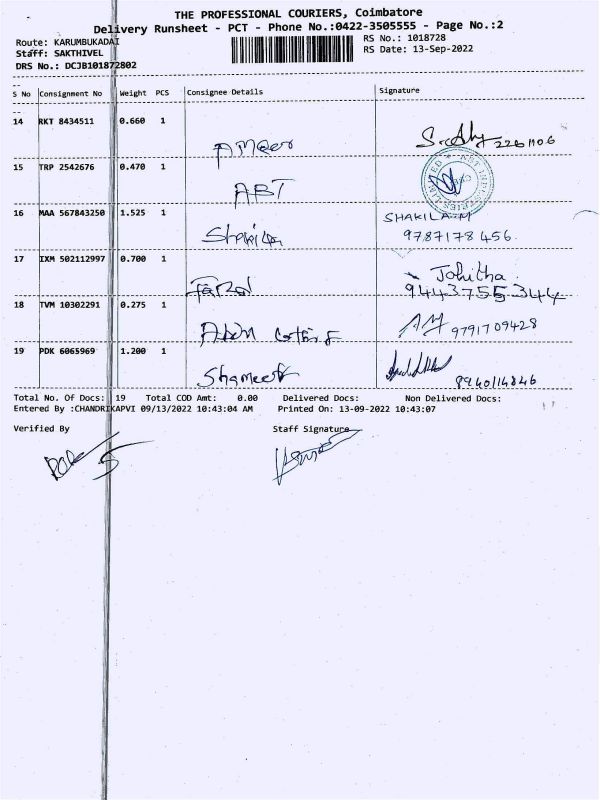 THE PROFESSIONAL COURIERS, Coimbatore
Delivery Runsheet - PCT - Phone No.:0422-3505555 - Page No.:2
Route: KARUMBUKADAI
RS No.: 1018728
Staff: SAKTHIVEL
RS Date: 13-Sep-2022
DRS No.: DCJB101872802
S No Consignment No Weight PCS Consignee Details Signature
14 RKT 8434511 0.660 1
AMeer
2261106
15 TRP 2542676 0.470 1
ABT
16 MAA 567843250 1.525 1
Shakila
SHAKILA.M
9787178456
17 IXM 502112997 0.700 1
Johitha
9443755344
18 TVM 10302291 0.275 1
9791709428
19 PDK 6065969 1.200 1
Shameer
8940114846
Total No. Of Docs: 19 Total COD Amt: 0.00 Delivered Docs: Non Delivered Docs:
Entered By :CHANDRIKAPVI 09/13/2022 10:43:04 AM Printed On: 13-09-2022 10:43:07
Verified By Staff Signature